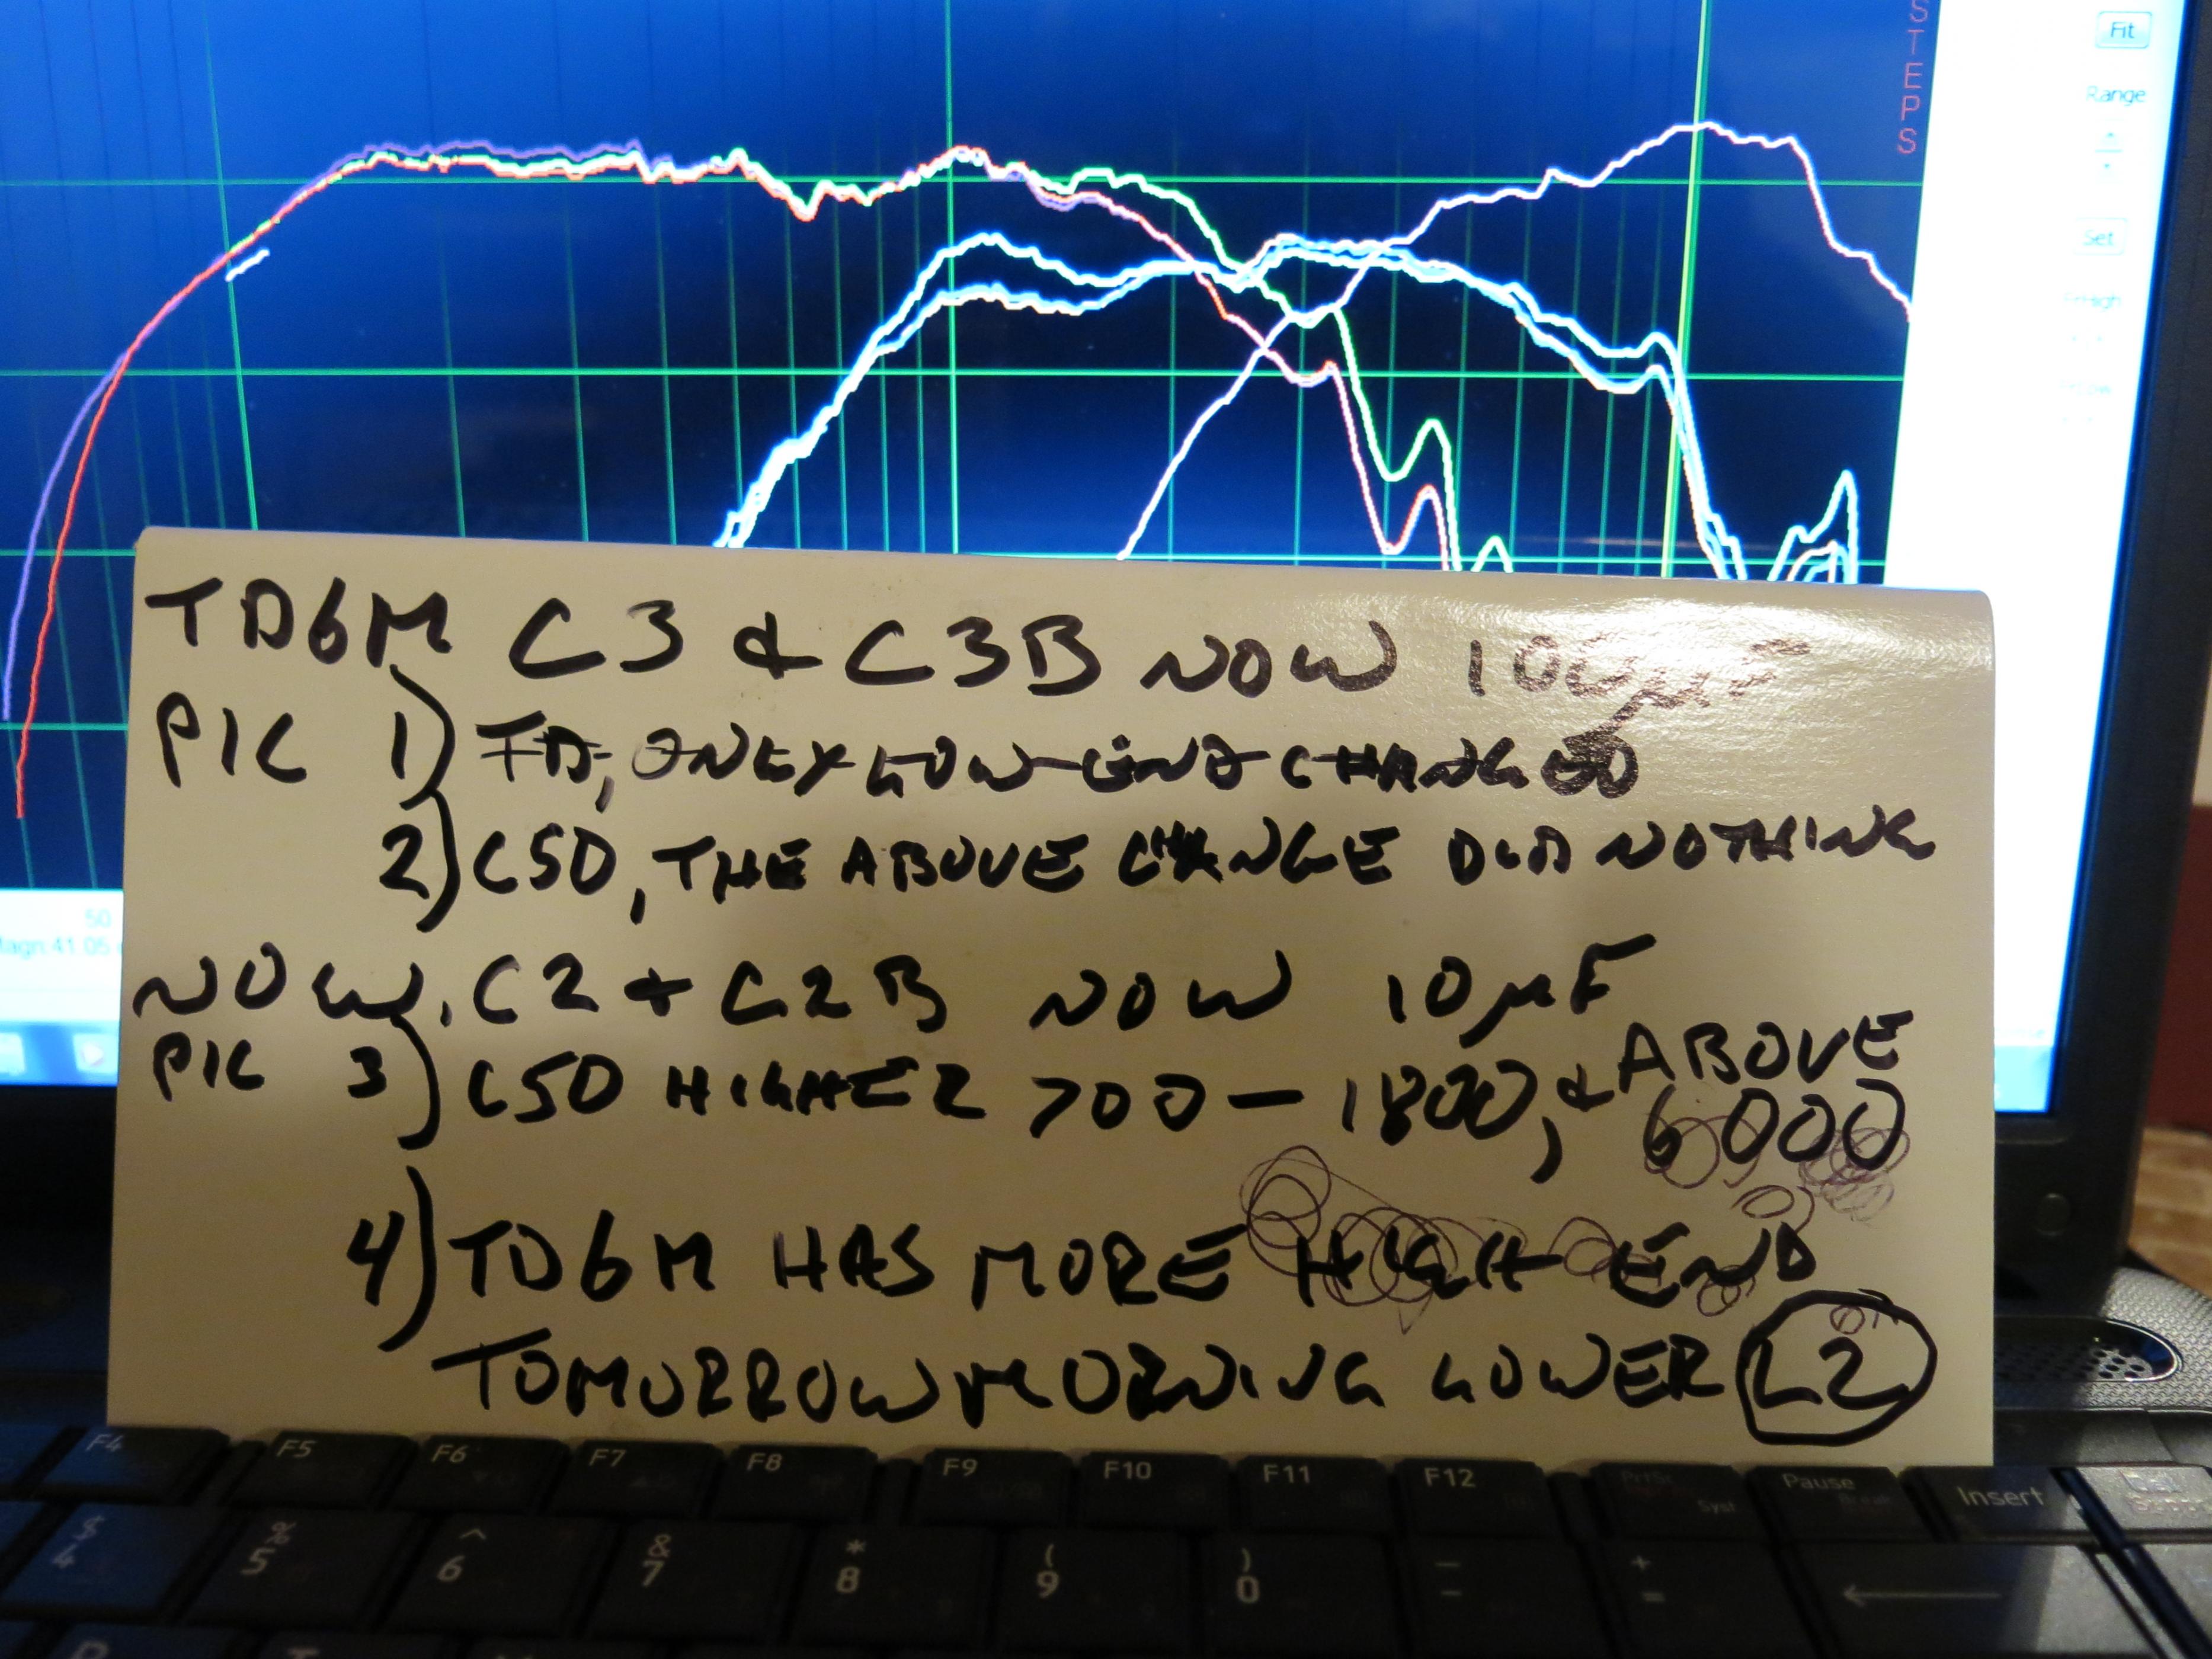 STEPS
Fit
Range
Set
TD6M C3 & C3B NOW 100µF
PIC 1) TD, ONLY LOW END CHANGED
2) C5D, THE ABOVE CHANGE DID NOTHING
50
Magn:41.05
NOW, C2 + C2B NOW 10µF
PIC 3) C5D HIGHER 700-1800, & ABOVE 6000
4) TD6M HAS MORE HIGH END
TOMORROW MORNING LOWER L2
F4 F5 F6 F7 F8 F9 F10 F11 F12 PrtSc Syst Pause Break Insert
$ 4 % 5 ^ 6 & 7 * 8 ( 9 ) 0 _ - + =